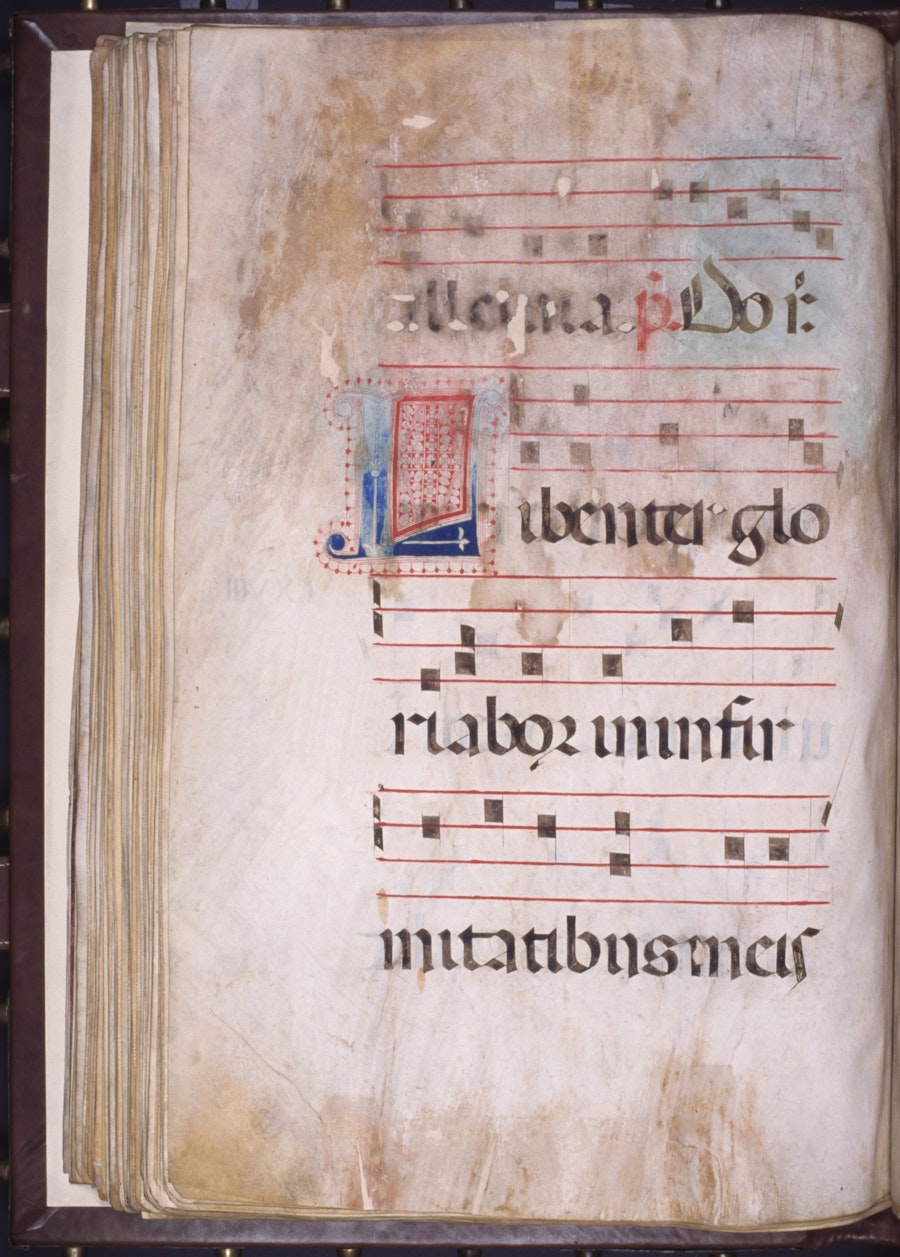 p. Do i:
Libenter glo
riabor in infir
mitatibus meis